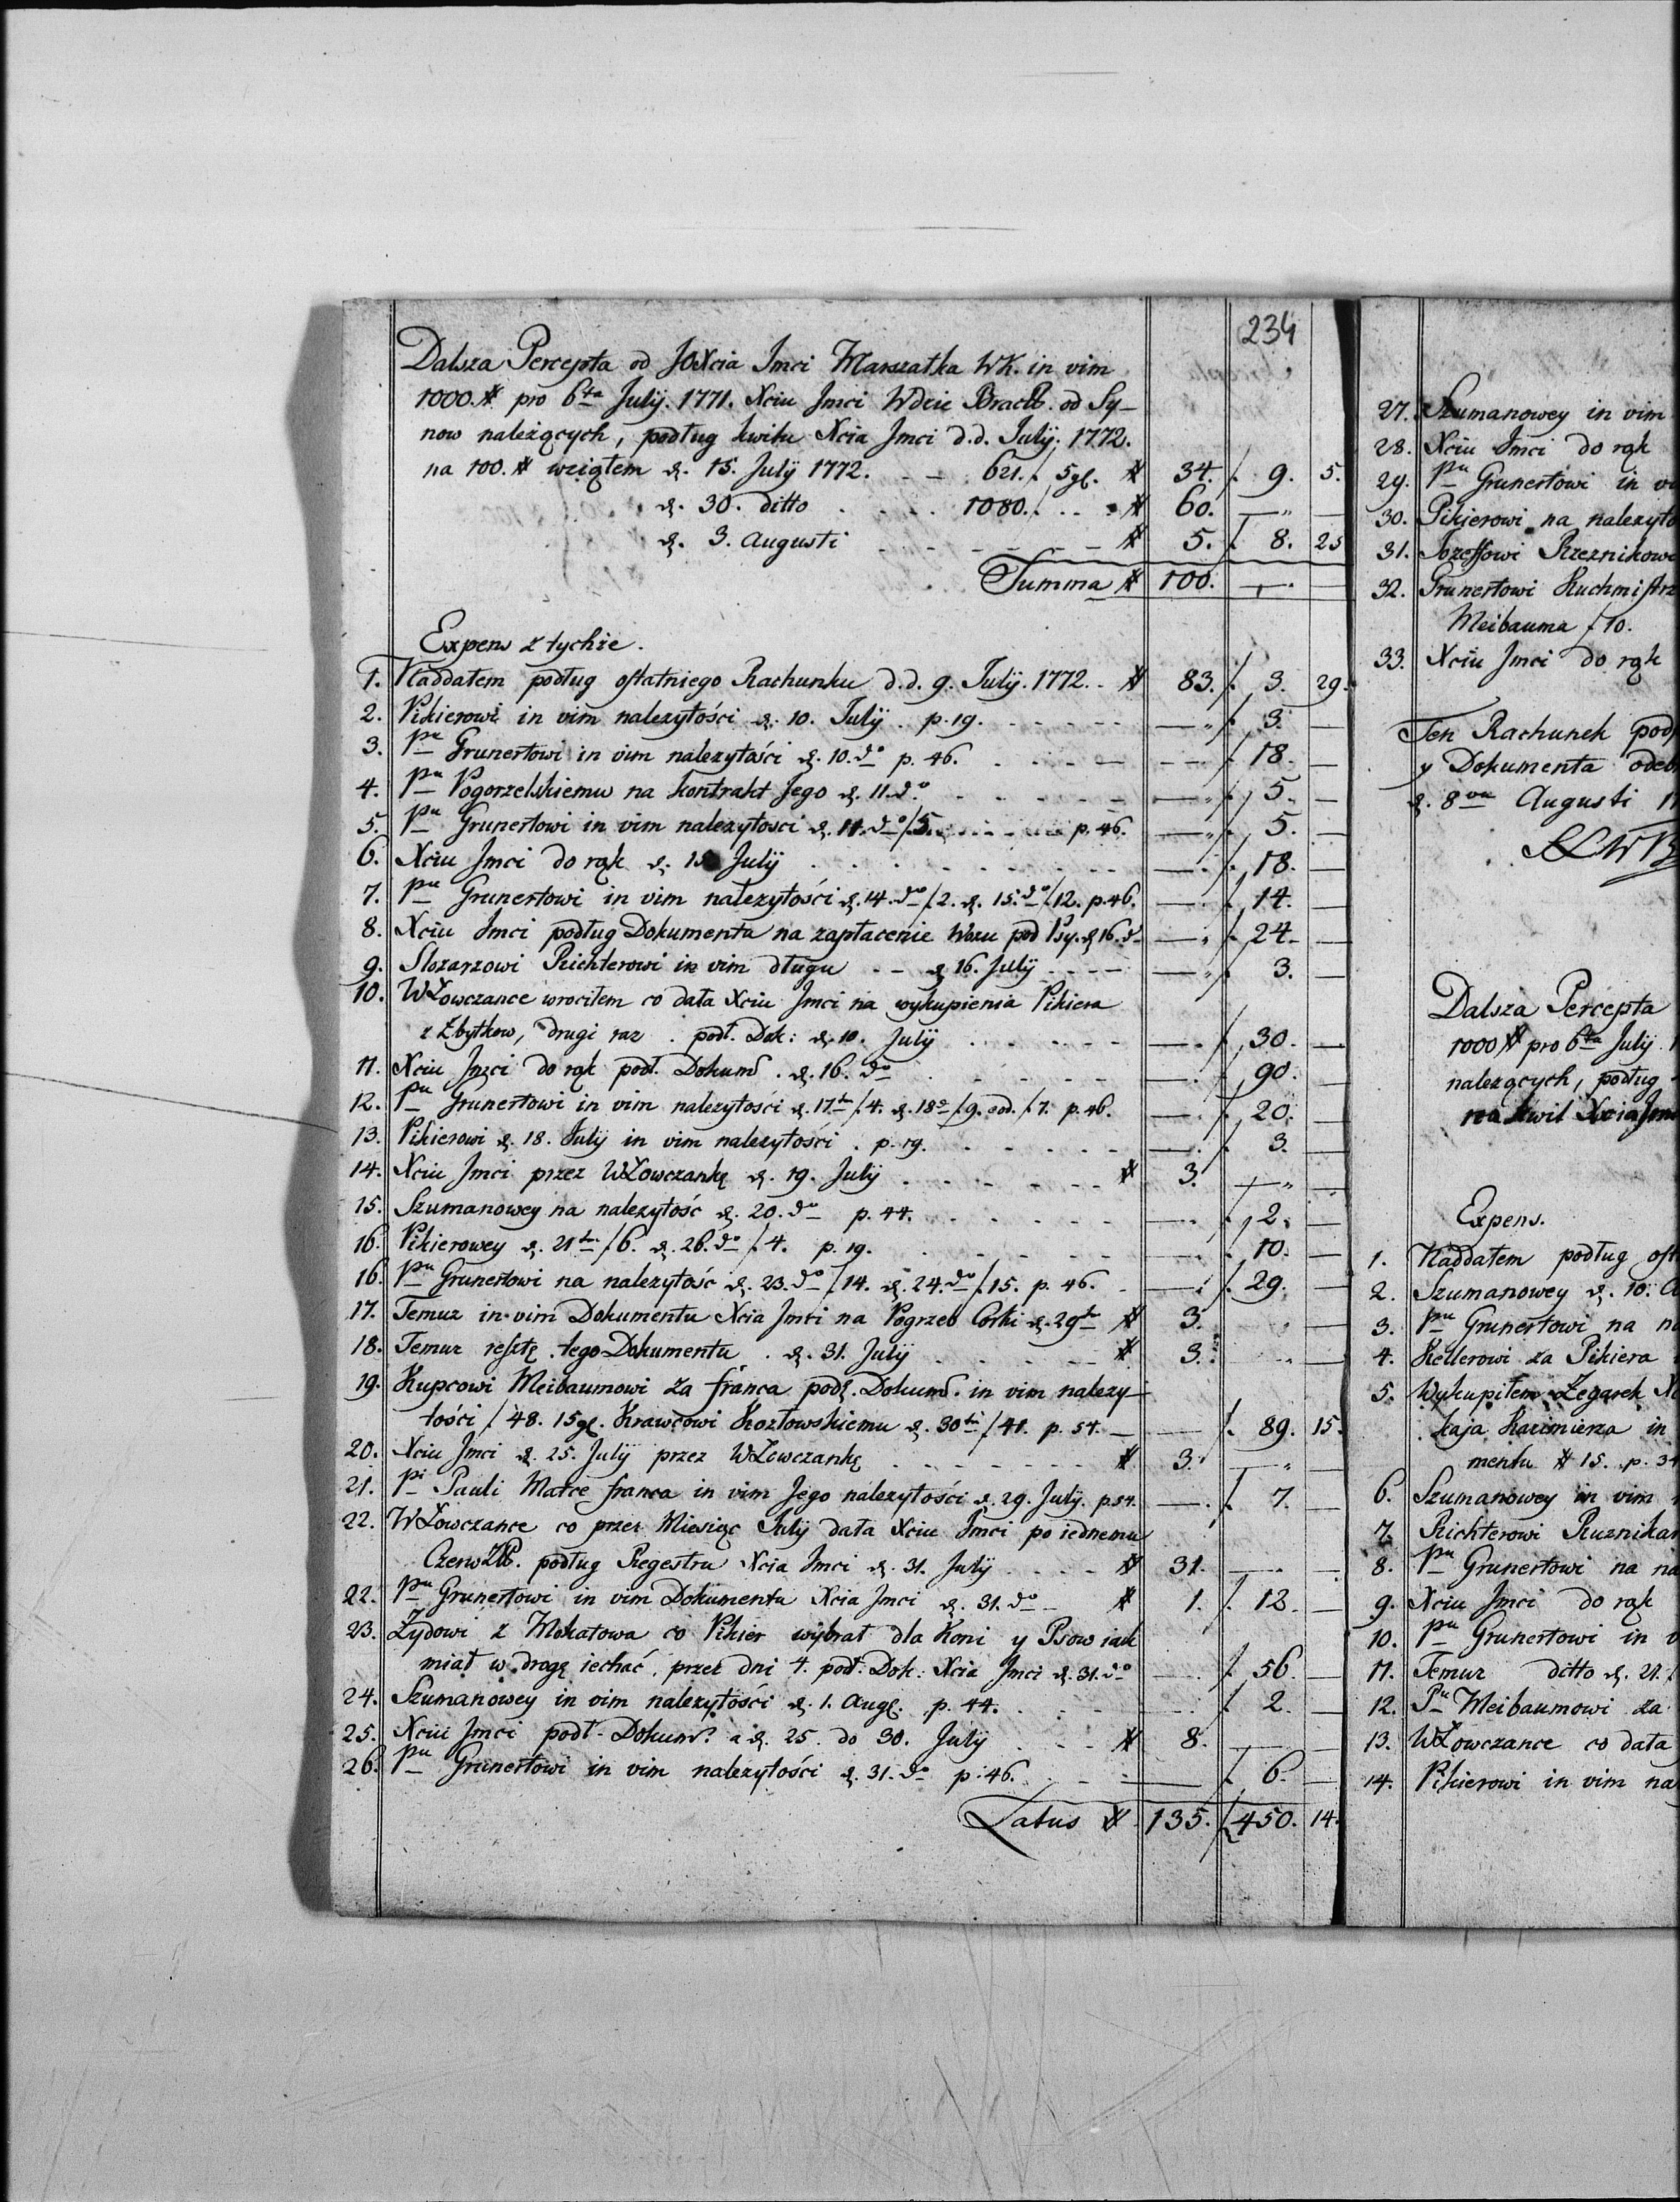 234
Dalsza Percepta od JOXcia Imci Marszałka WK. in vim
1000. # pro 6ta July. 1771. Xciu Imci Wdzie Bracł. od Sy-
now należących, podług kwitu Xcia Imci d.d. July. 1772.
na 100. # wziąłem d. 15. July 1772. - - 621. f. 5 gl. # 34. f. 9. 5.
d. 30. ditto . . . . 1080. f. . . # 60. — —
d. 3. Augusti - - - - - # 5. f. 8. 25
Summa # 100. —
Expens z tychże.
1. Naddałem podług ostatniego Rachunku d.d. 9. July. 1772. - # 83. f. 3. 29.
2. Pikierowi in vim należytości d. 10. July. p. 19. - - - — f. 3. —
3. Pu Grunertowi in vim należytości d. 10. do p. 46. - - - — f. 18. —
4. Pu Pogorzelskiemu na kontrakt Jego d. 11. do - - - — f. 5. —
5. Pu Grunertowi in vim należytosci d. 11. do f. 5. - - - p. 46. — f. 5. —
6. Xciu Imci do rąk d. 15 July . . . . — f. 18. —
7. Pu Grunertowi in vim należytości d. 14. do f. 2. d. 15. do f. 12. p. 46. — f. 14. —
8. Xciu Imci podług Dokumentu na zapłacenie Wozu pod Psy. d 16. d — f. 24. —
9. Slozarzowi Richterowi in vim długu - - d 16. July - - - — f. 3. —
10. WŁowczance wrociłem co dała Xciu Imci na wykupienia Pikiera
z Zbytkow, drugi raz . podł. Dok: d. 10. July . . . . — f. 30. —
11. Xciu Imci do rąk podł. Dokum . d. 16. do . . . — f. 90. —
12. Pu Grunertowi in vim należytosci d. 17 f. 4. d. 18 f. 9. eod. f. 7. p. 46. — f. 20. —
13. Pikierowi d. 18. July in vim należytości . p. 19. . . . — f. 3. —
14. Xciu Imci przez WŁowczankę d. 19. July . . . . # 3. — —
15. Szumanowey na należytość d. 20. do p. 44. . . . — f. 2. —
16. Pikierowey d. 21 f. 6. d. 26. do f. 4. p. 19. . . . — f. 10. —
16. Pu Grunertowi na należytość d. 23. do f. 14. d. 24. do f. 15. p. 46. — f. 29. —
17. Temuz in vim Dokumentu Xcia Imci na Pogrzeb Corki d. 29 # 3. —
18. Temuz resztę tego Dokumentu . d. 31. July . . . . # 3. —
19. Kupcowi Meibaumowi za franca podł. Dokum. in vim należy-
tości f. 48. 15 gl. Krawcowi Kozłowskiemu d. 30 f. 41. p. 54. — f. 89. 15.
20. Xciu Imci d. 25. July przez WŁowczankę . . . . # 3. — —
21. Pi Pauli Matce franca in vim Jego należytości d. 29. July. p. 54. — f. 7. —
22. WŁowczance co przez Miesiąc July dała Xciu Imci po iednemu
Czerw Zł. podług Regestru Xcia Imci d. 31. July . . . # 31. — —
22. Pu Grunertowi in vim Dokumentu Xcia Imci d. 31. do - # 1. f. 12. —
23. Zydowi z Mokatowa co Pikier wybrał dla Koni y Psow iak
miał w drogę iechać, przez dni 4. podł. Dok: Xcia Imci d. 31. do — f. 56. —
24. Szumanowey in vim należytości d. 1. Aug. p. 44. . . . f. 2. —
25. Xciu Imci podł. Dokum. a d. 25. do 30. July . . . # 8. — —
26. Pu Grunertowi in vim należytości d. 31. do p. 46. . . — f. 6. —
Latus # 135. f. 450. 14.
27. Szumanowey in vim
28. Xciu Imci do rąk
29. Pu Grunertowi in
30. Pikierowi na należyto
31. Jozeffowi Rzeznikowi
32. Grunertowi Kuchmistrz
Meibauma f. 10.
33. Xciu Imci do rąk
Ten Rachunek pod
y Dokumenta odeb
d. 8va Augusti
Dalsza Percepta
1000 # pro 6ta July
należących, podług
na kwit Xcia Im
Expens.
1. Naddałem podług ost
2. Szumanowey d. 10.
3. Pu Grunertowi na
4. Kellerowi za Pikiera
5. Wykupiłem Zegarek
kaja Kazimierza in
mentu # 15. p. 34
6. Szumanowey in vim
7. Richterowi Rusznikar
8. Pu Grunertowi na na
9. Xciu Imci do rąk
10. Pu Grunertowi in
11. Temuz ditto d. 21.
12. Pu Meibaumowi za
13. WŁowczance co dała
14. Pikierowi in vim na